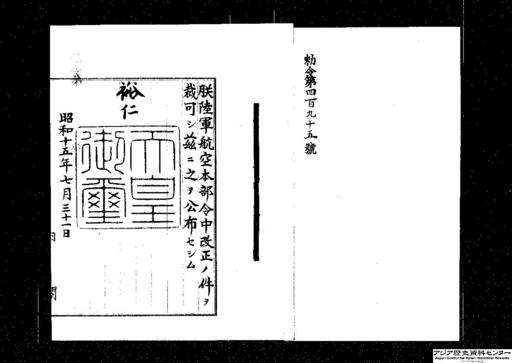 勅令第四百九十五號
朕陸軍航空本部令中改正ノ件ヲ
裁可シ茲ニ之ヲ公布セシム
裕仁
天皇
御璽
昭和十五年七月三十一日
内
閣
アジア歴史資料センター
Japan Center for Asian Historical Records